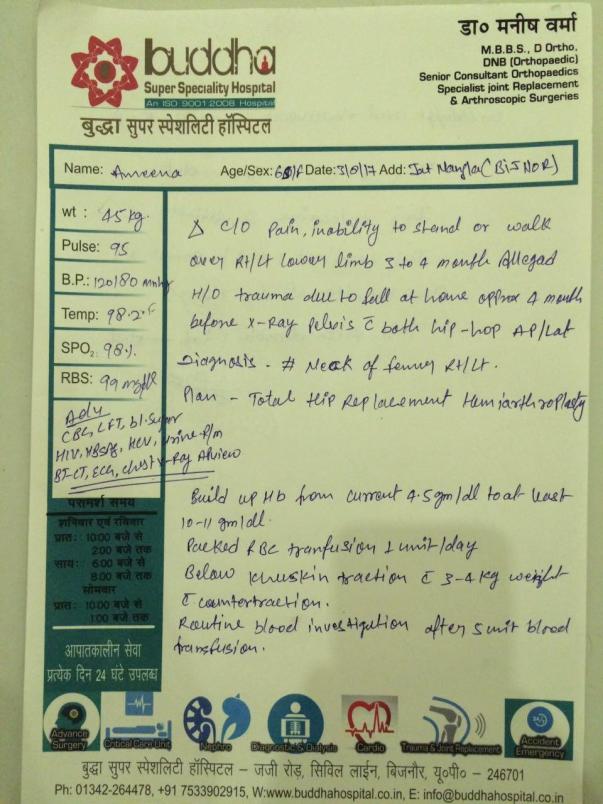 डा० मनीष वर्मा
M.B.B.S., D Ortho,
DNB (Orthopaedic)
Senior Consultant Orthopaedics
Specialist joint Replacement
& Arthroscopic Surgeries
buddha
Super Speciality Hospital
An ISO 9001:2008 Hospital
बुद्धा सुपर स्पेशलिटी हॉस्पिटल
Name: Ameena Age/Sex: Date: 3/8/17 Add: Jat Nangla (BIJNOR)
wt : 45 kg.
Pulse: 95
B.P.: 120/80 mmhg
Temp: 98.2.F
SPO2: 98%.
RBS: 99 mg/dl
Adv
CBC, LFT, bl. Sugar
HIV, HBsAg, HCV, Urine R/m
BT-CT, ECG, chest X-Ray AP view
Δ C/O Pain, inability to stand or walk
over Rt/Lt lower limb 3 to 4 month Alleged
H/O trauma due to fall at home approx 4 month
before X-Ray pelvis c̄ both hip-hop AP/Lat
Diagnosis - # Neck of femur Rt/Lt.
Plan - Total Hip Replacement Hemiarthroplasty
Build up Hb from current 4.5 gm/dl to at least
10-11 gm/dl.
Packed RBC tranfusion 1 unit/day
Below skin traction c̄ 3-4 kg weight
c̄ countertraction.
Routine blood investigation after 5 unit blood
transfusion.
परामर्श समय
शनिवार एवं रविवार
प्रातः 10:00 बजे से
2:00 बजे तक
सायः 6:00 बजे से
8:00 बजे तक
सोमवार
प्रातः 10:00 बजे से
1:00 बजे तक
आपातकालीन सेवा
प्रत्येक दिन 24 घंटे उपलब्ध
Advance Surgery
Critical Care Unit
Nephro
Diagnostic & Dialysis
Cardio
Trauma & Joint Replacement
24x7
Accident Emergency
बुद्धा सुपर स्पेशलिटी हॉस्पिटल – जजी रोड़, सिविल लाईन, बिजनौर, यू०पी० - 246701
Ph: 01342-264478, +91 7533902915, W:www.buddhahospital.co.in, E: info@buddhahospital.co.in